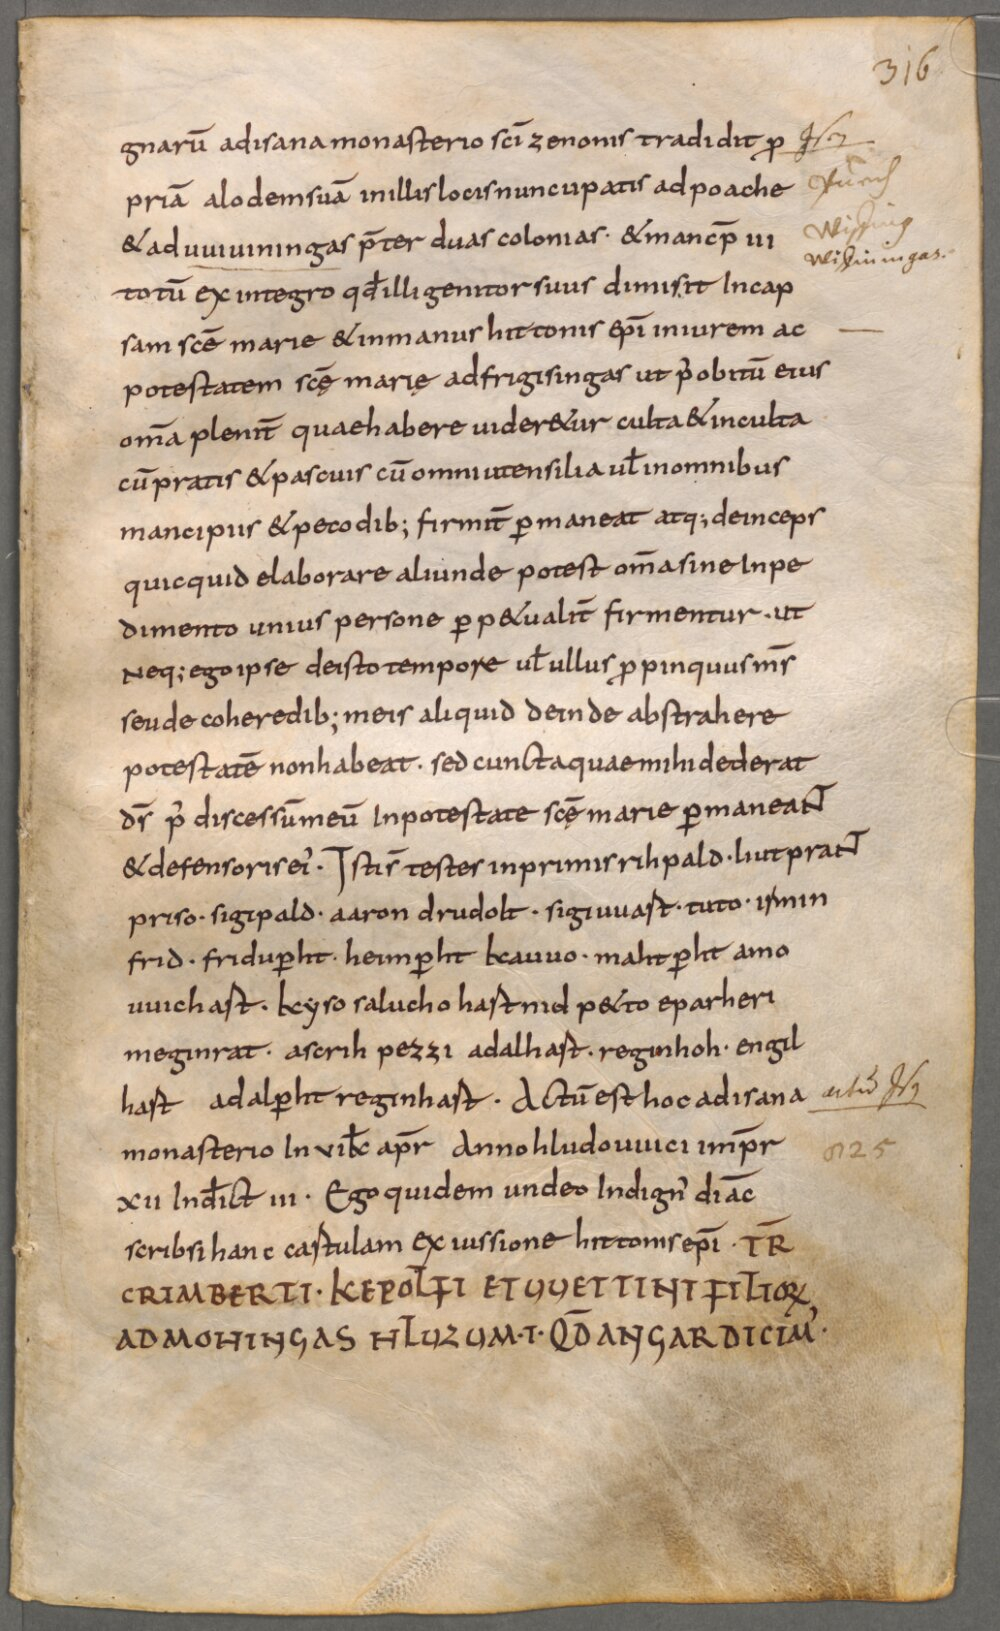 316
gnarū adisana monasterio sc̄i zenonis tradidit ꝓ
priā alodem suā in illis locis nuncupatis ad poache
& ad uuiuiningas p̄ter duas colonias · & manc̄p ui
totū ex integro qd̄ illi genitor suus dimisit In cap
sam sc̄e marie & in manus hittonis ep̄i in iurem ac
potestatem sc̄ę marię ad frigisingas ut p̉ obitū eius
om̄a plenit̄ quae habere uider&ur culta & inculta
cū pratis & pascuis cū omni utensilia ul̄ in omnibus
mancipiis & pecodib; firmit̄ ꝑmaneat atq; deinceps
quicquid elaborare aliunde potest om̄a sine Inpe
dimento unius persone ꝑp&ualit̄ firmentur · ut
Neq; ego ipse de isto tempore ul̄ ullus ꝓpinquus m̄s
seu de coheredib; meis aliquid deinde abstrahere
potestatē non habeat · sed cuncta quae mihi dederat
d̄s p̉ discessūmeū In potestate sc̄ę marie ꝑmaneant
& defensoris ei᾿ · Istis̄ testes in primis rihpald · liutprant
priso · sigipald · aaron drudolt · sigiuuast · tuto · irmin
frid · friduꝑht · heimꝑht kauuo · mahtꝑht amo
uuichast · kyso salucho hastnid p&to eparheri
meginrat · ascrih pezzi adalhast · reginhoh · engil
hast adalꝑht reginhast · Actū est hoc ad isana
monasterio In vik̄ apr̄ Anno hludouuici imp̄r
xii Ind̄ict iii · Ego quidem undeo Indign᾿ diāc
scribsi hanc castulam ex iussione hittonis ep̄i · TR̄
CRIMBERTI · KEPOLFI ET UUETTINI FILIOꝜ
AD MOHINGAS NLUZUM · I · QD̄ ANGAR DICIM᾿ ·
Wiffing
Wifininngas.
825